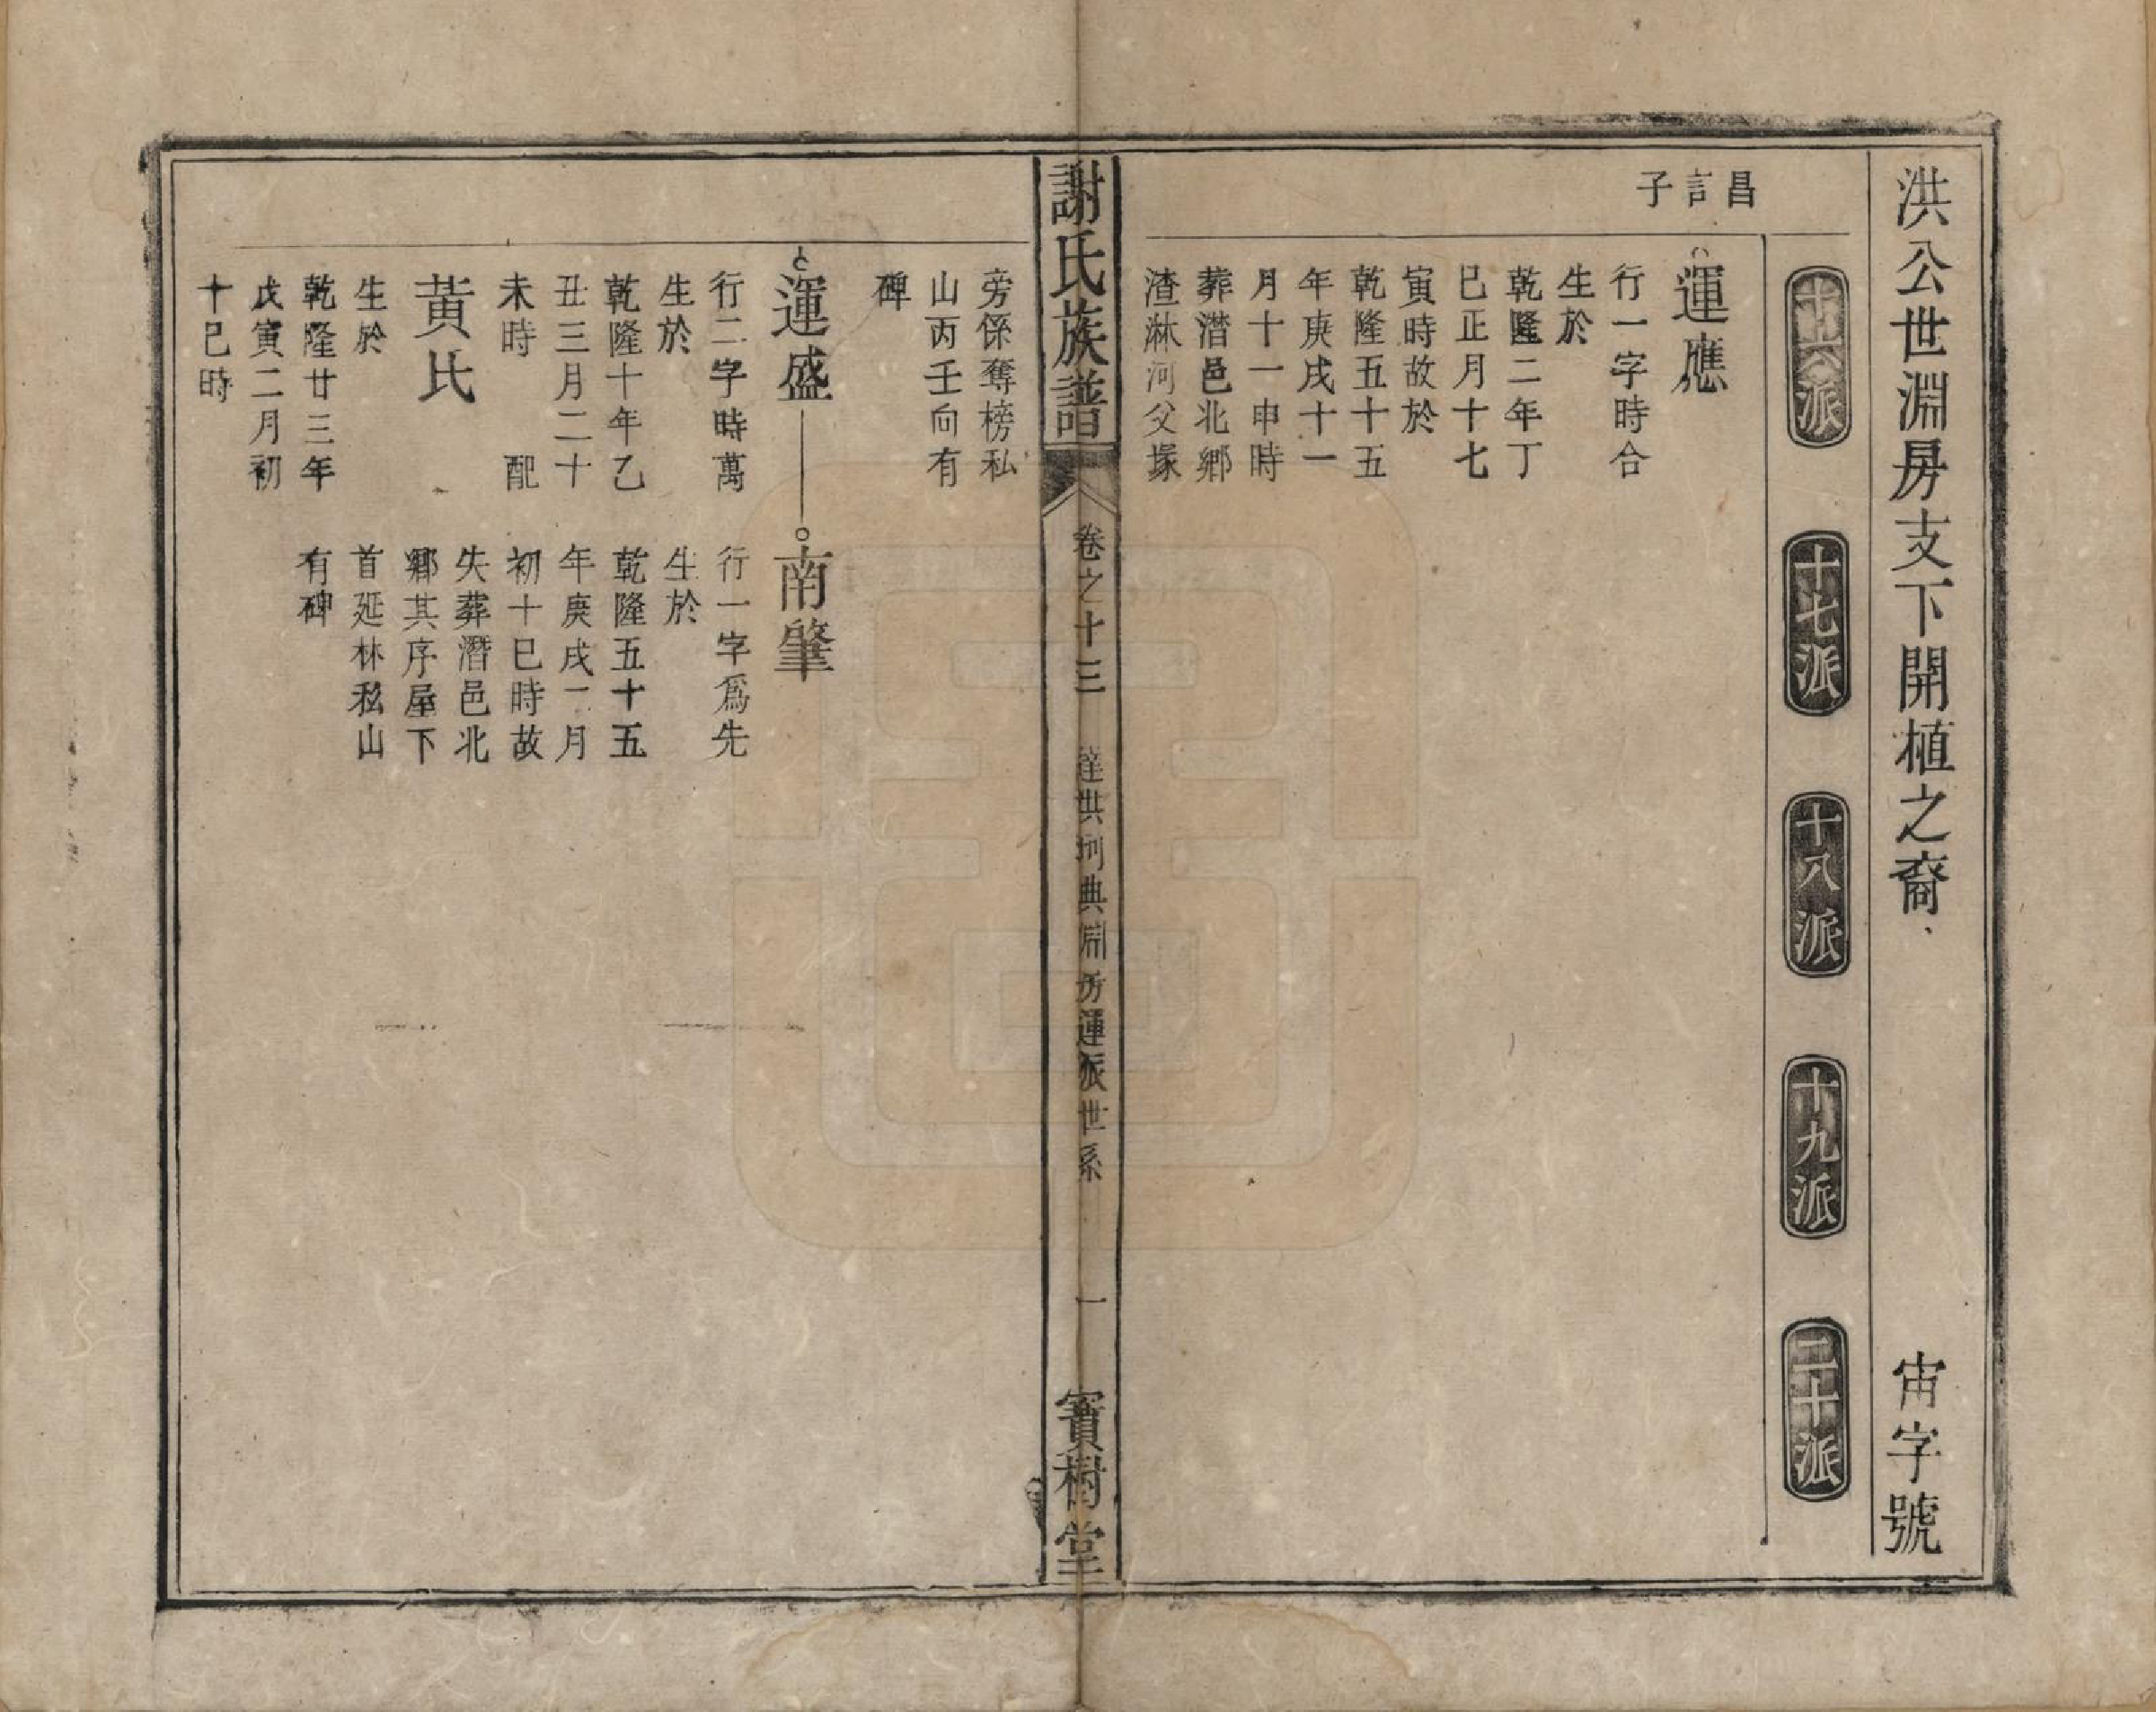 洪公世淵房支下開植之裔
宙字號
十六派
十七派
十八派
十九派
二十派
昌言子
運應
行一字時合
生於
乾隆二年丁
巳正月十七
寅時故於
乾隆五十五
年庚戌十一
月十一申時
葬潛邑北鄉
渣淋河父塚
謝氏族譜
卷之十三
達洪坷典淵房運派世系
一
寶樹堂
旁係奪榜私
山丙壬向有
碑
運盛
行二字時萬
生於
乾隆十年乙
丑三月二十
未時 配
黃氏
生於
乾隆廿三年
戊寅二月初
十巳時
南肇
行一字為先
生於
乾隆五十五
年庚戌二月
初十巳時故
失葬潛邑北
鄉其序屋下
首延林私山
有碑